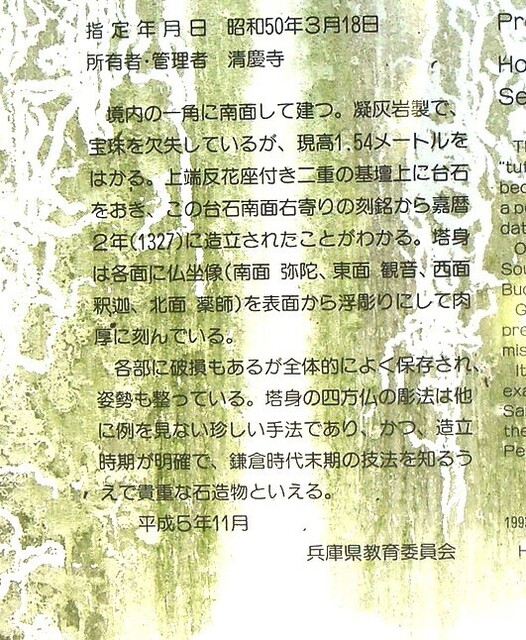 指定年月日　昭和50年3月18日
所有者・管理者　清慶寺
境内の一角に南面して建つ。凝灰岩製で、
宝珠を欠失しているが、現高1.54メートルを
はかる。上端反花座付き二重の基壇上に台石
をおき、この台石南面右寄りの刻銘から嘉暦
2年(1327)に造立されたことがわかる。塔身
は各面に仏坐像(南面 弥陀、東面 観音、西面
釈迦、北面 薬師)を表面から浮彫りにして肉
厚に刻んでいる。
各部に破損もあるが全体的によく保存され、
姿勢も整っている。塔身の四方仏の彫法は他
に例を見ない珍しい手法であり、かつ、造立
時期が明確で、鎌倉時代末期の技法を知るう
えで貴重な石造物といえる。
平成5年11月
兵庫県教育委員会
Pr
Ho
Se
"tut
bec
a p
dat
O
Sou
Bud
G
pre
mis
It
exa
Sa
the
Pe
199
H